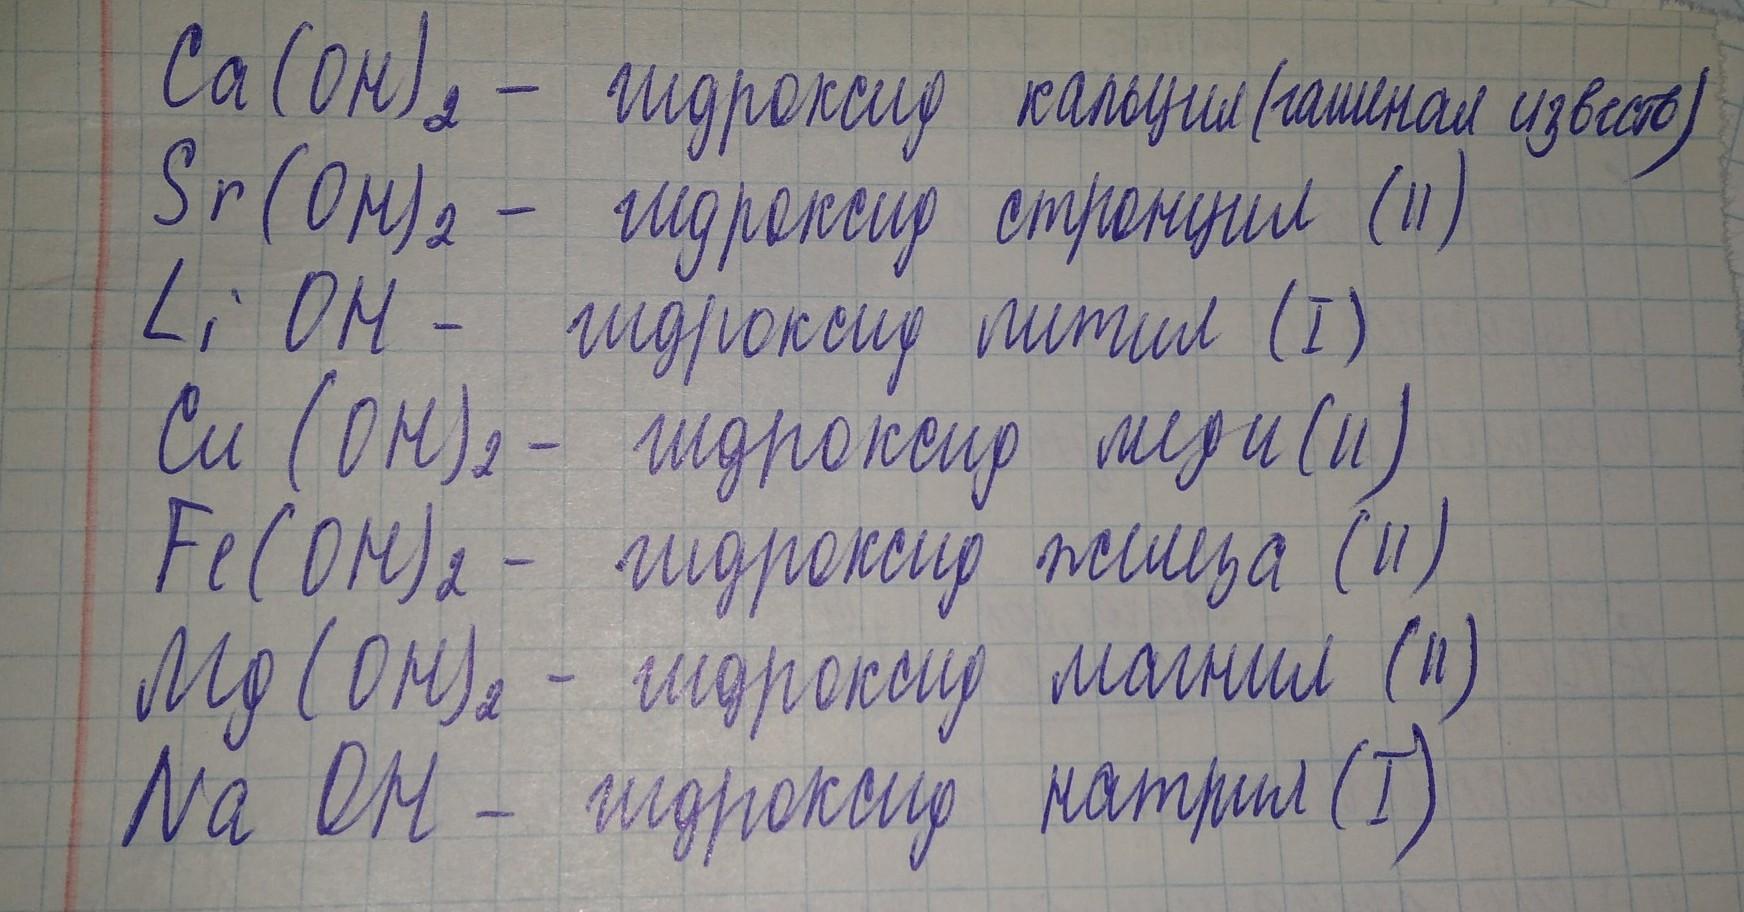 Ca(OH)₂ – гидроксид кальция (гашеная известь)
Sr(OH)₂ – гидроксид стронция (II)
Li OH – гидроксид лития (I)
Cu (OH)₂ – гидроксид меди (II)
Fe(OH)₂ – гидроксид железа (II)
Mg(OH)₂ – гидроксид магния (II)
Na OH – гидроксид натрия (I)